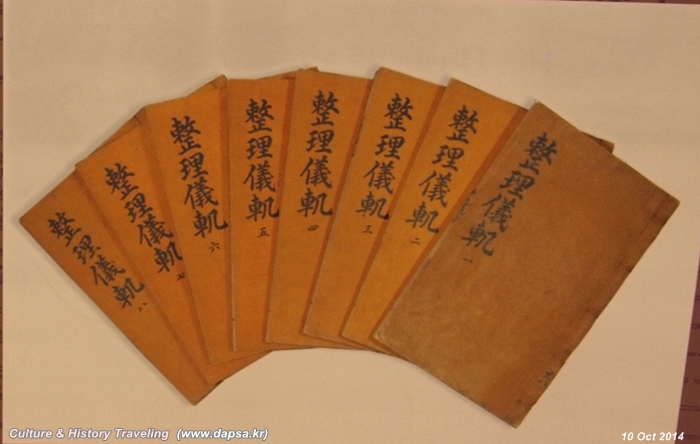 整理儀軌 一
整理儀軌 二
整理儀軌 三
整理儀軌 四
整理儀軌 五
整理儀軌 六
整理儀軌 七
整理儀軌 八
Culture & History Traveling (www.dapsa.kr)
10 Oct 2014